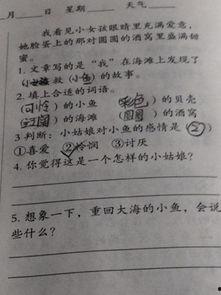 月 日 星期 天气
我看见小女孩眼睛里充满爱意,
她脸蛋上的那对圆圆的酒窝里盛满甜
蜜。
1. 文章写的是“我”在海滩上发现了
(小女孩)救(小鱼)的故事。
2. 填上合适的词语。
(可怜)的小鱼 (彩色)的贝壳
()的海滩 (圆圆)的酒窝
3 判断: 小姑娘对小鱼的感情是(②)
①喜爱 ②怜悯 ③讨厌
4. 你觉得这是一个怎样的小姑娘?
5. 想象一下, 重回大海的小鱼, 会说
些什么?